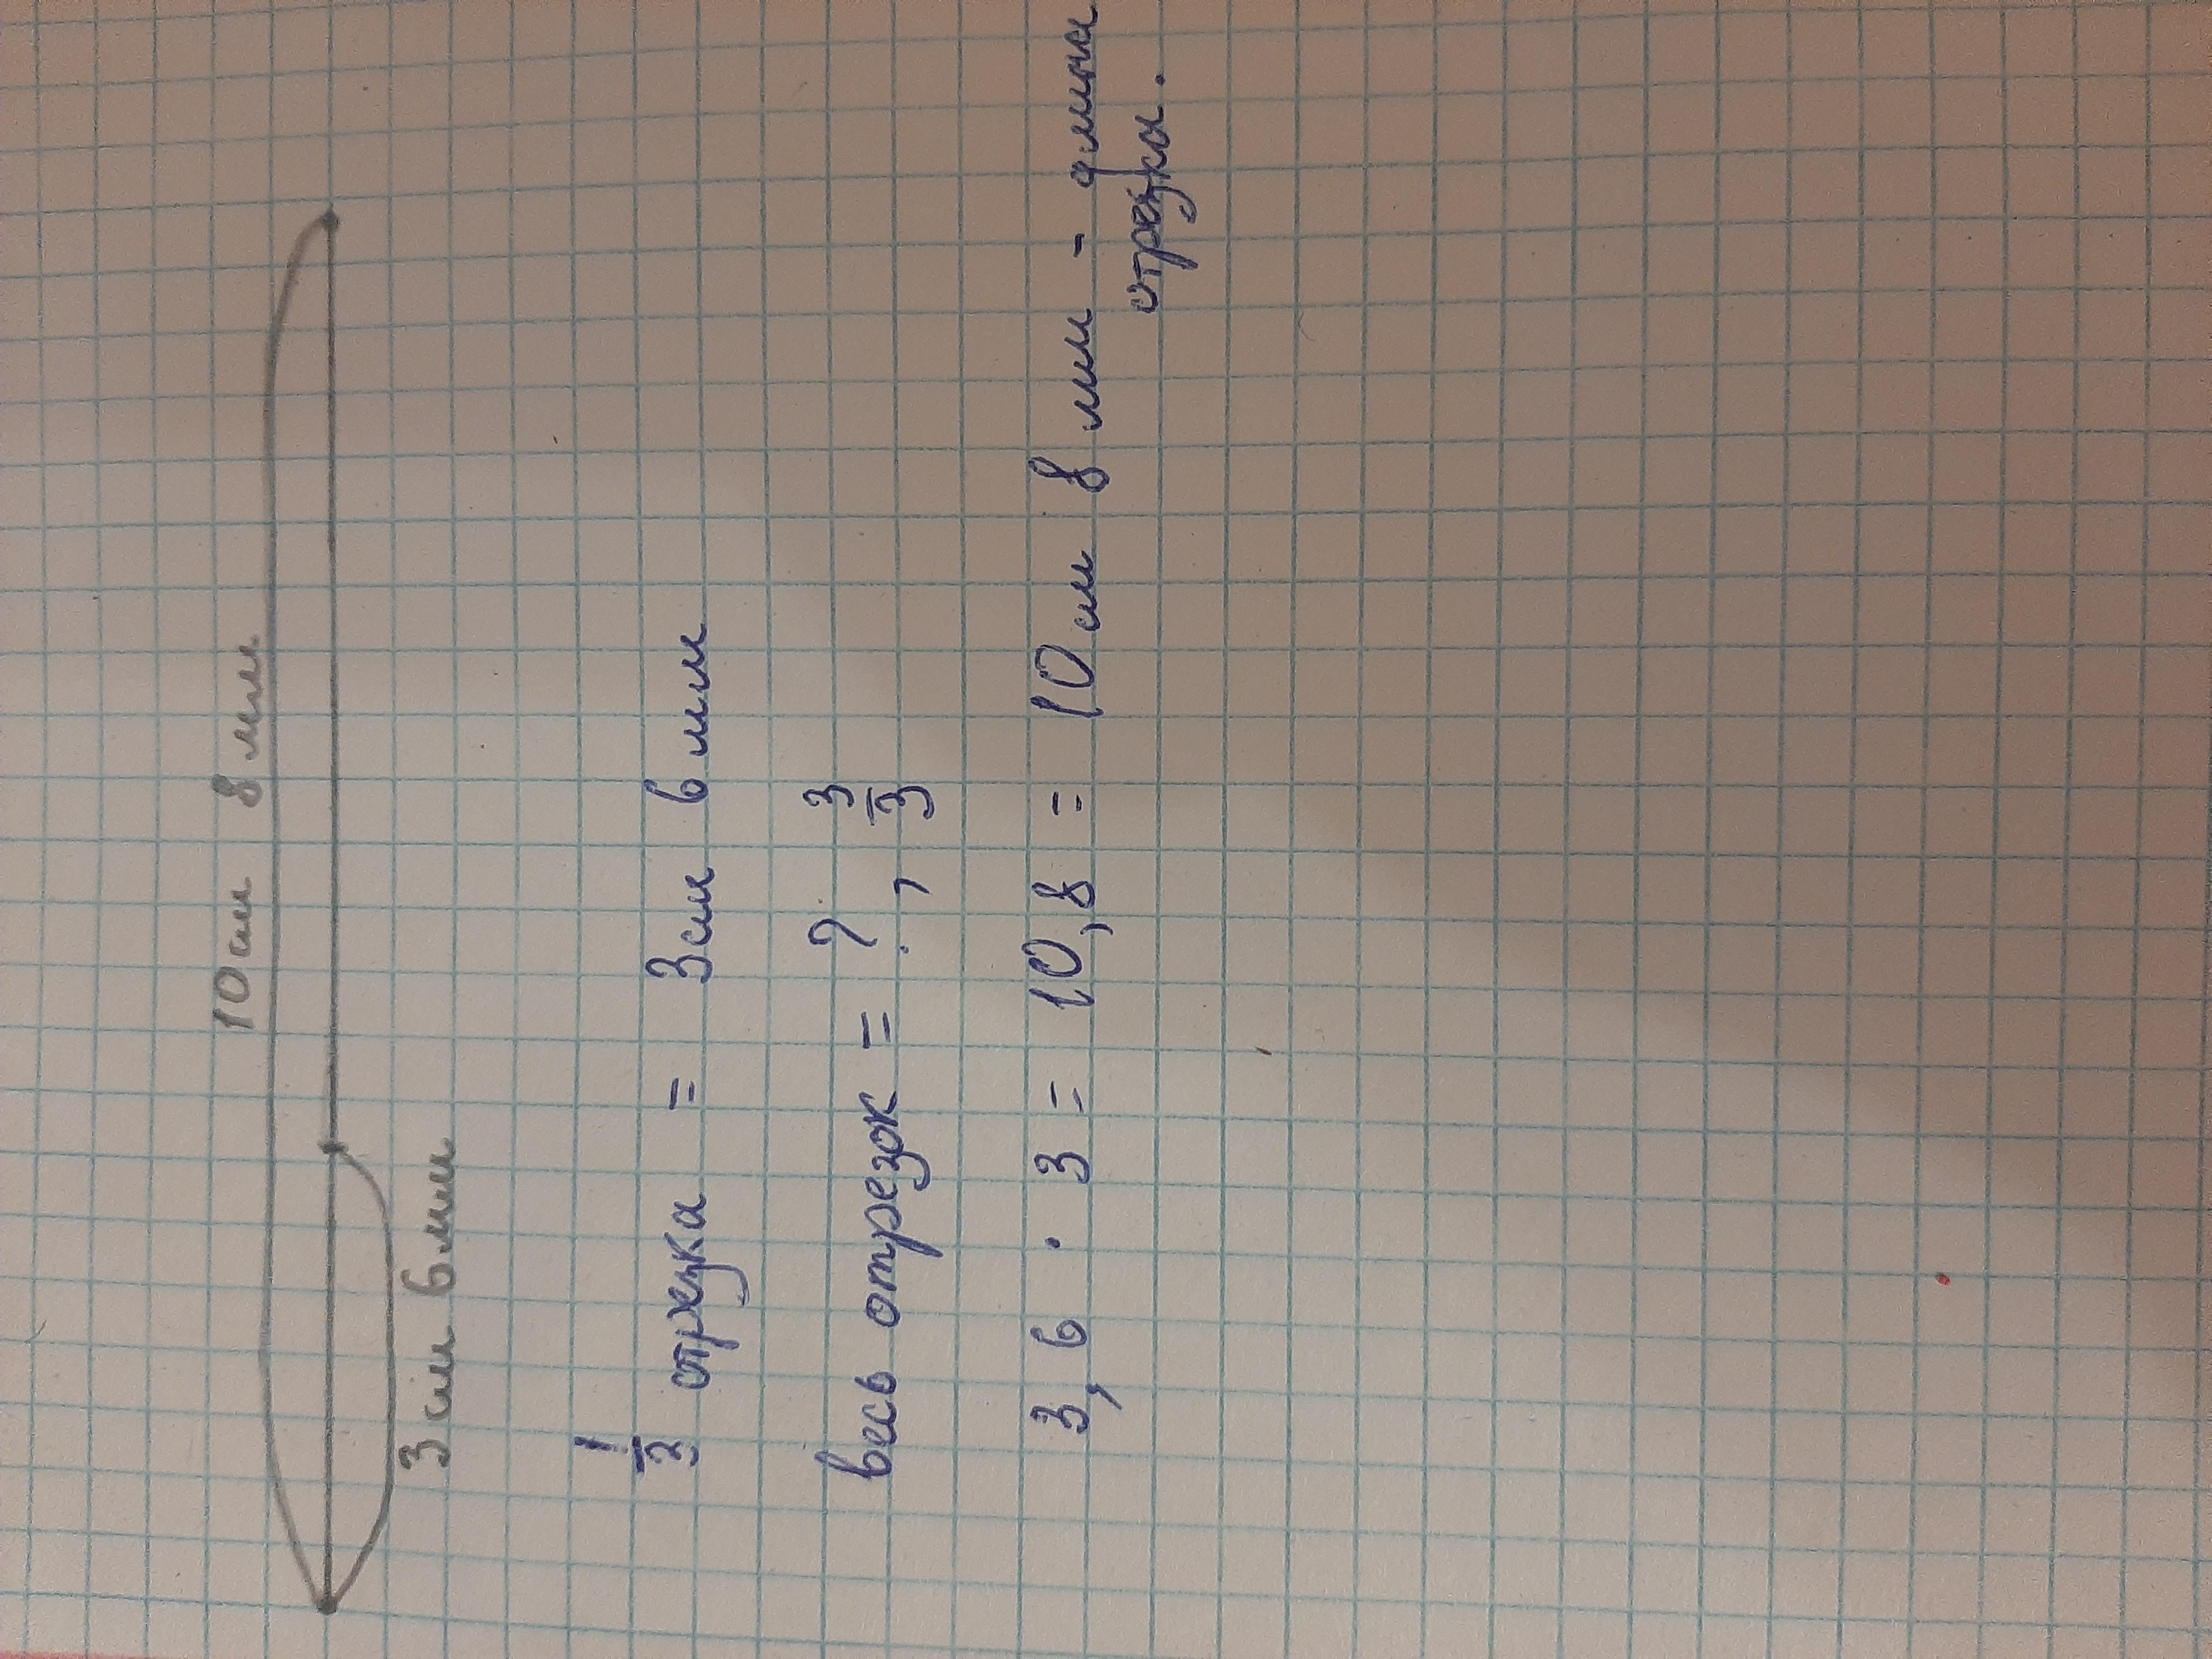 10 см 8 мм
3 см 6 мм
1/3 отрезка = 3 см 6 мм
весь отрезок = ?, 3/3
3,6 · 3 = 10,8 = 10 см 8 мм - длина
отрезка.